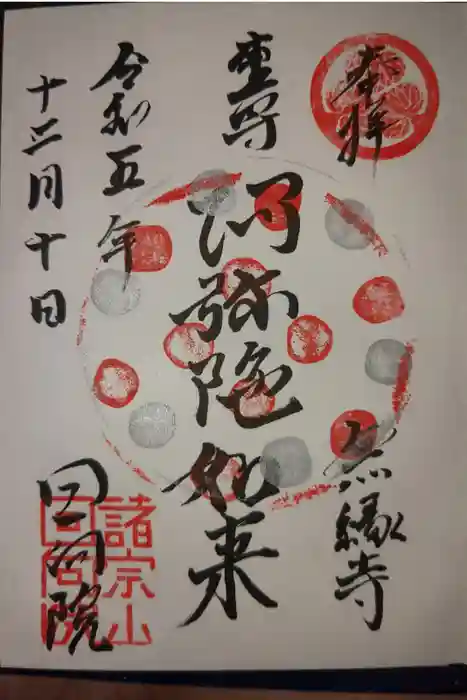 奉拝
無縁寺
尊
阿弥陀如来
令和五年
十二月十日
回向院
諸宗山
回向院